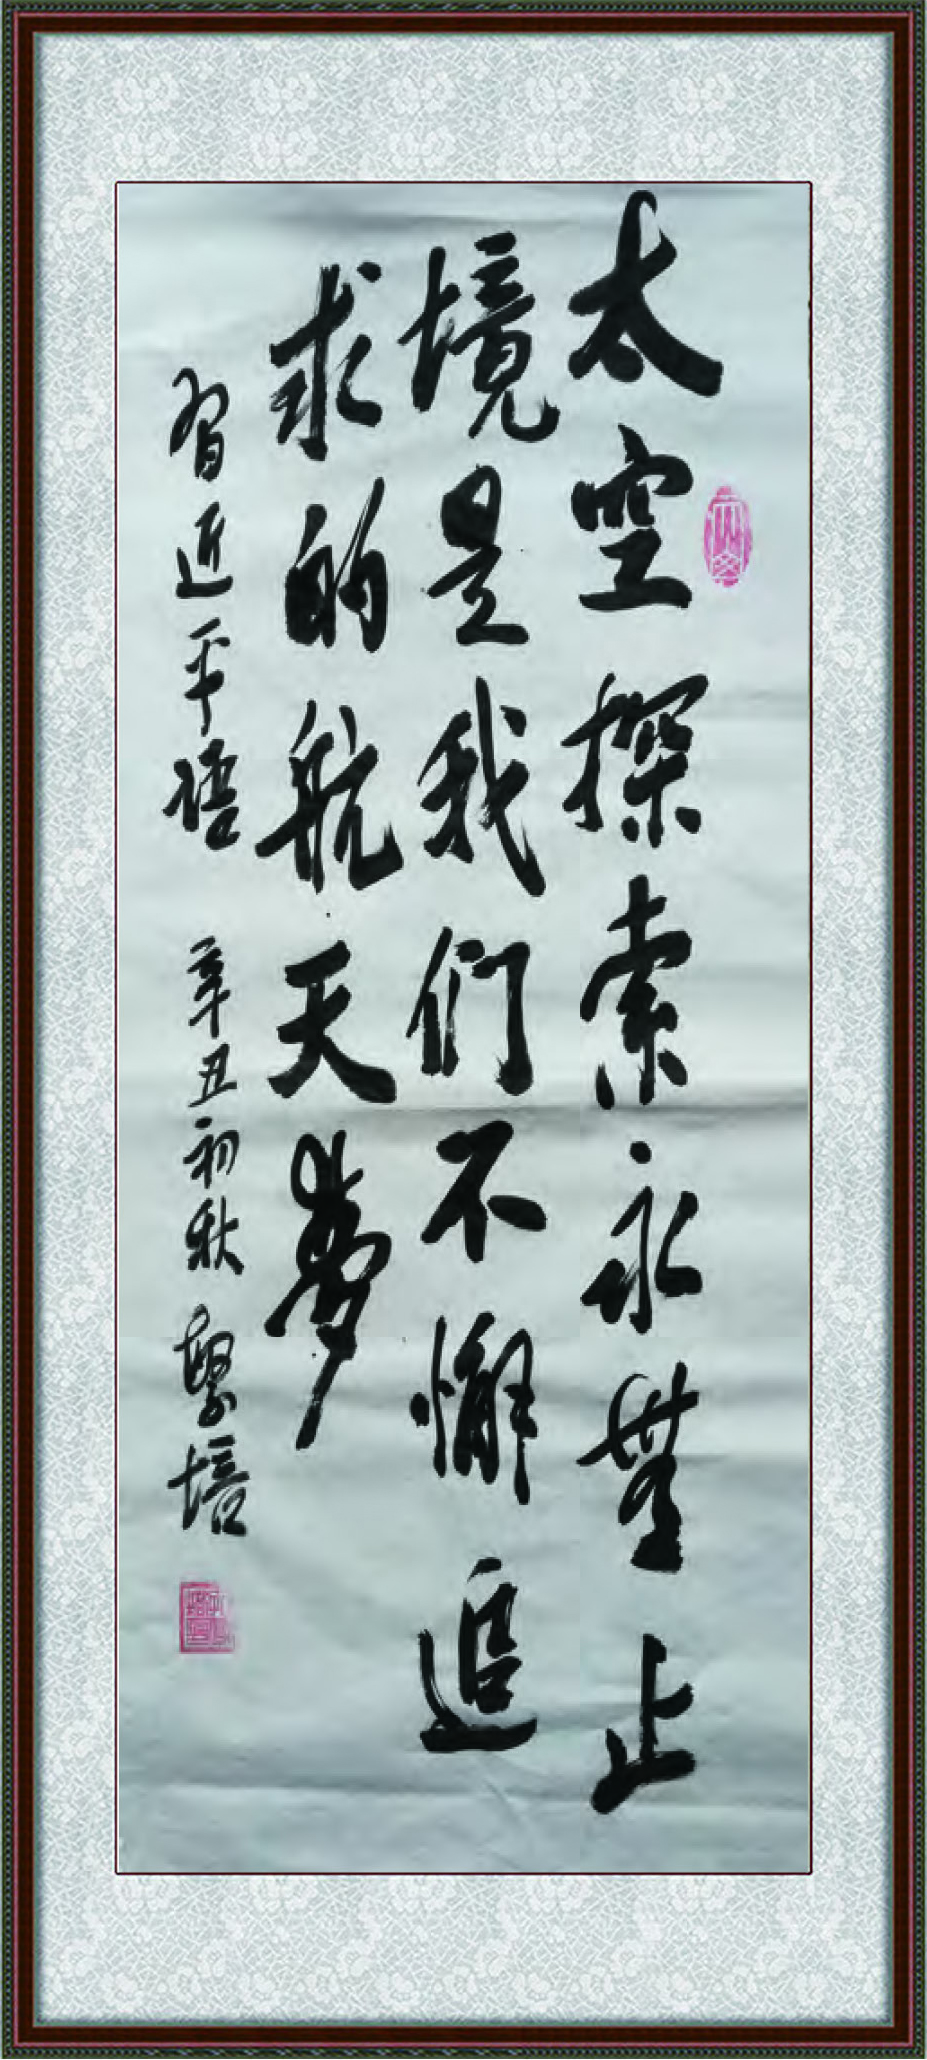 太空探索永無止
境是我们不懈追
求的航天夢
習近平语 辛丑初秋 培